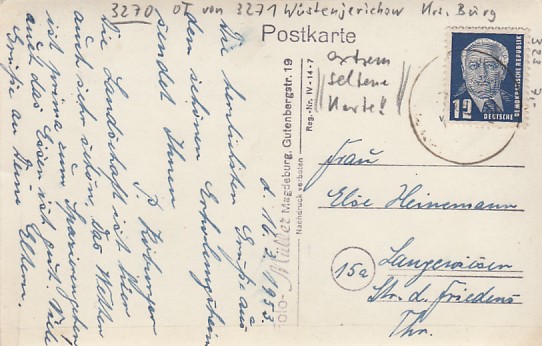 3270 OT von 3271 Wüstenjerichow Krs. Burg
Postkarte
extrem
seltene
Karte!
12
DEUTSCHE
DEMOKRATISCHE REPUBLIK
Reg.-Nr. IV-14-7
Müller Magdeburg, Gutenbergstr. 19
Nachdruck verboten
d. 16.2.1953.
Die herzlichsten Grüße aus
dem schönen Erholungsheim
sendet Ihnen
Die Landschaft ist hier
auch sehr schön, das Wetter
ist prima zum Spazierengehen
auch das Essen ist gut. Viele
Grüße an Deine Eltern,
Frau
Else Heinemann
15a
Langewiesen
Str. d. Friedens
Thr.